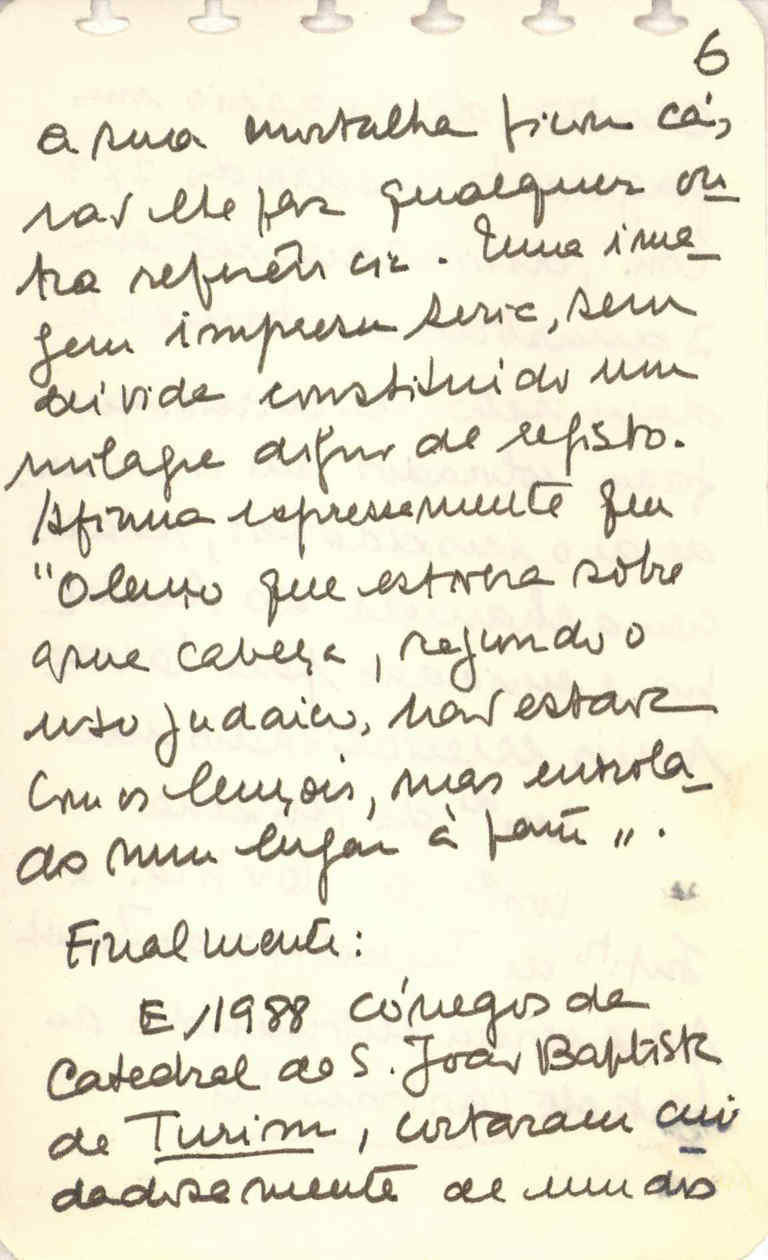 6
a sua mortalha ficou cá,
não lhe faz qualquer ou-
tra referência. Uma ima-
gem impressa seria, sem
dúvida constituido um
milagre digno de registo.
Afirma expressamente que
"O lenço que estivera sobre
a sua cabeça, segundo o
uso judaico, não estava
com os lençois, mas enrola-
do num lugar à parte".
Finalmente:
E, 1988 cónegos da
Catedral de S. João Baptista
de Turim, cortaram cui-
dadosamente de um dos